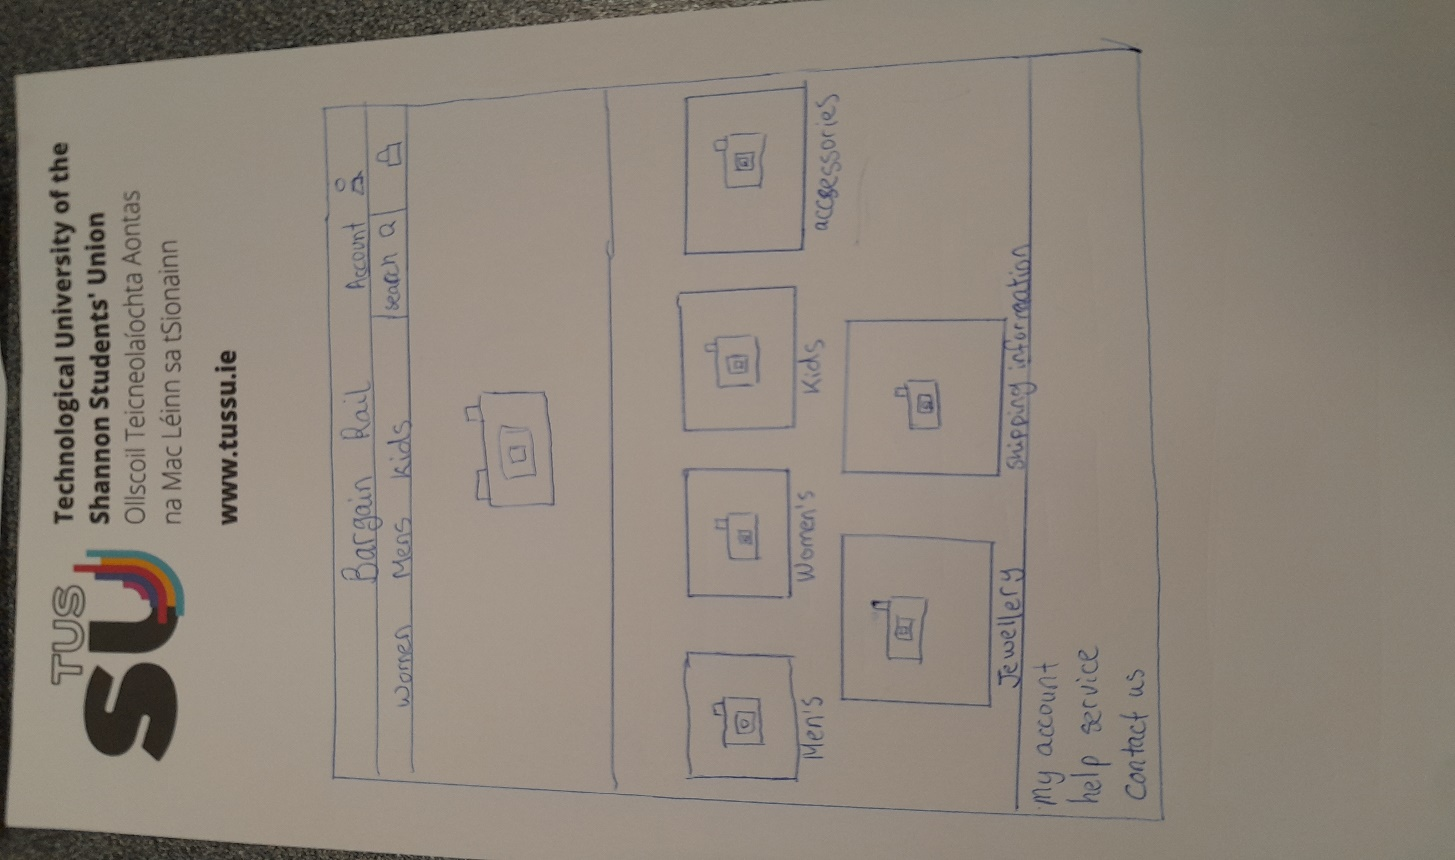 TUS
SU
Technological University of the
Shannon Students' Union
Ollscoil Teicneolaíochta Aontas
na Mac Léinn sa tSionainn
www.tussu.ie
Bargain Rail Account
Women Mens Kids Search
Men's Women's Kids accessories
Jewellery shipping information
My account
help service
Contact us